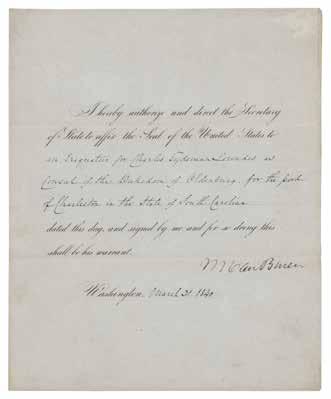 I hereby authorize and direct the Secretary
of State to affix the Seal of the United States to
an Exequatur for Charles Tydeman Lowndes as
Consul of the Dukedom of Oldenburg, for the port
of Charleston in the State of South Carolina
dated this day, and signed by me and for so doing this
shall be his warrant.
M Van Buren
Washington, March 31. 1840